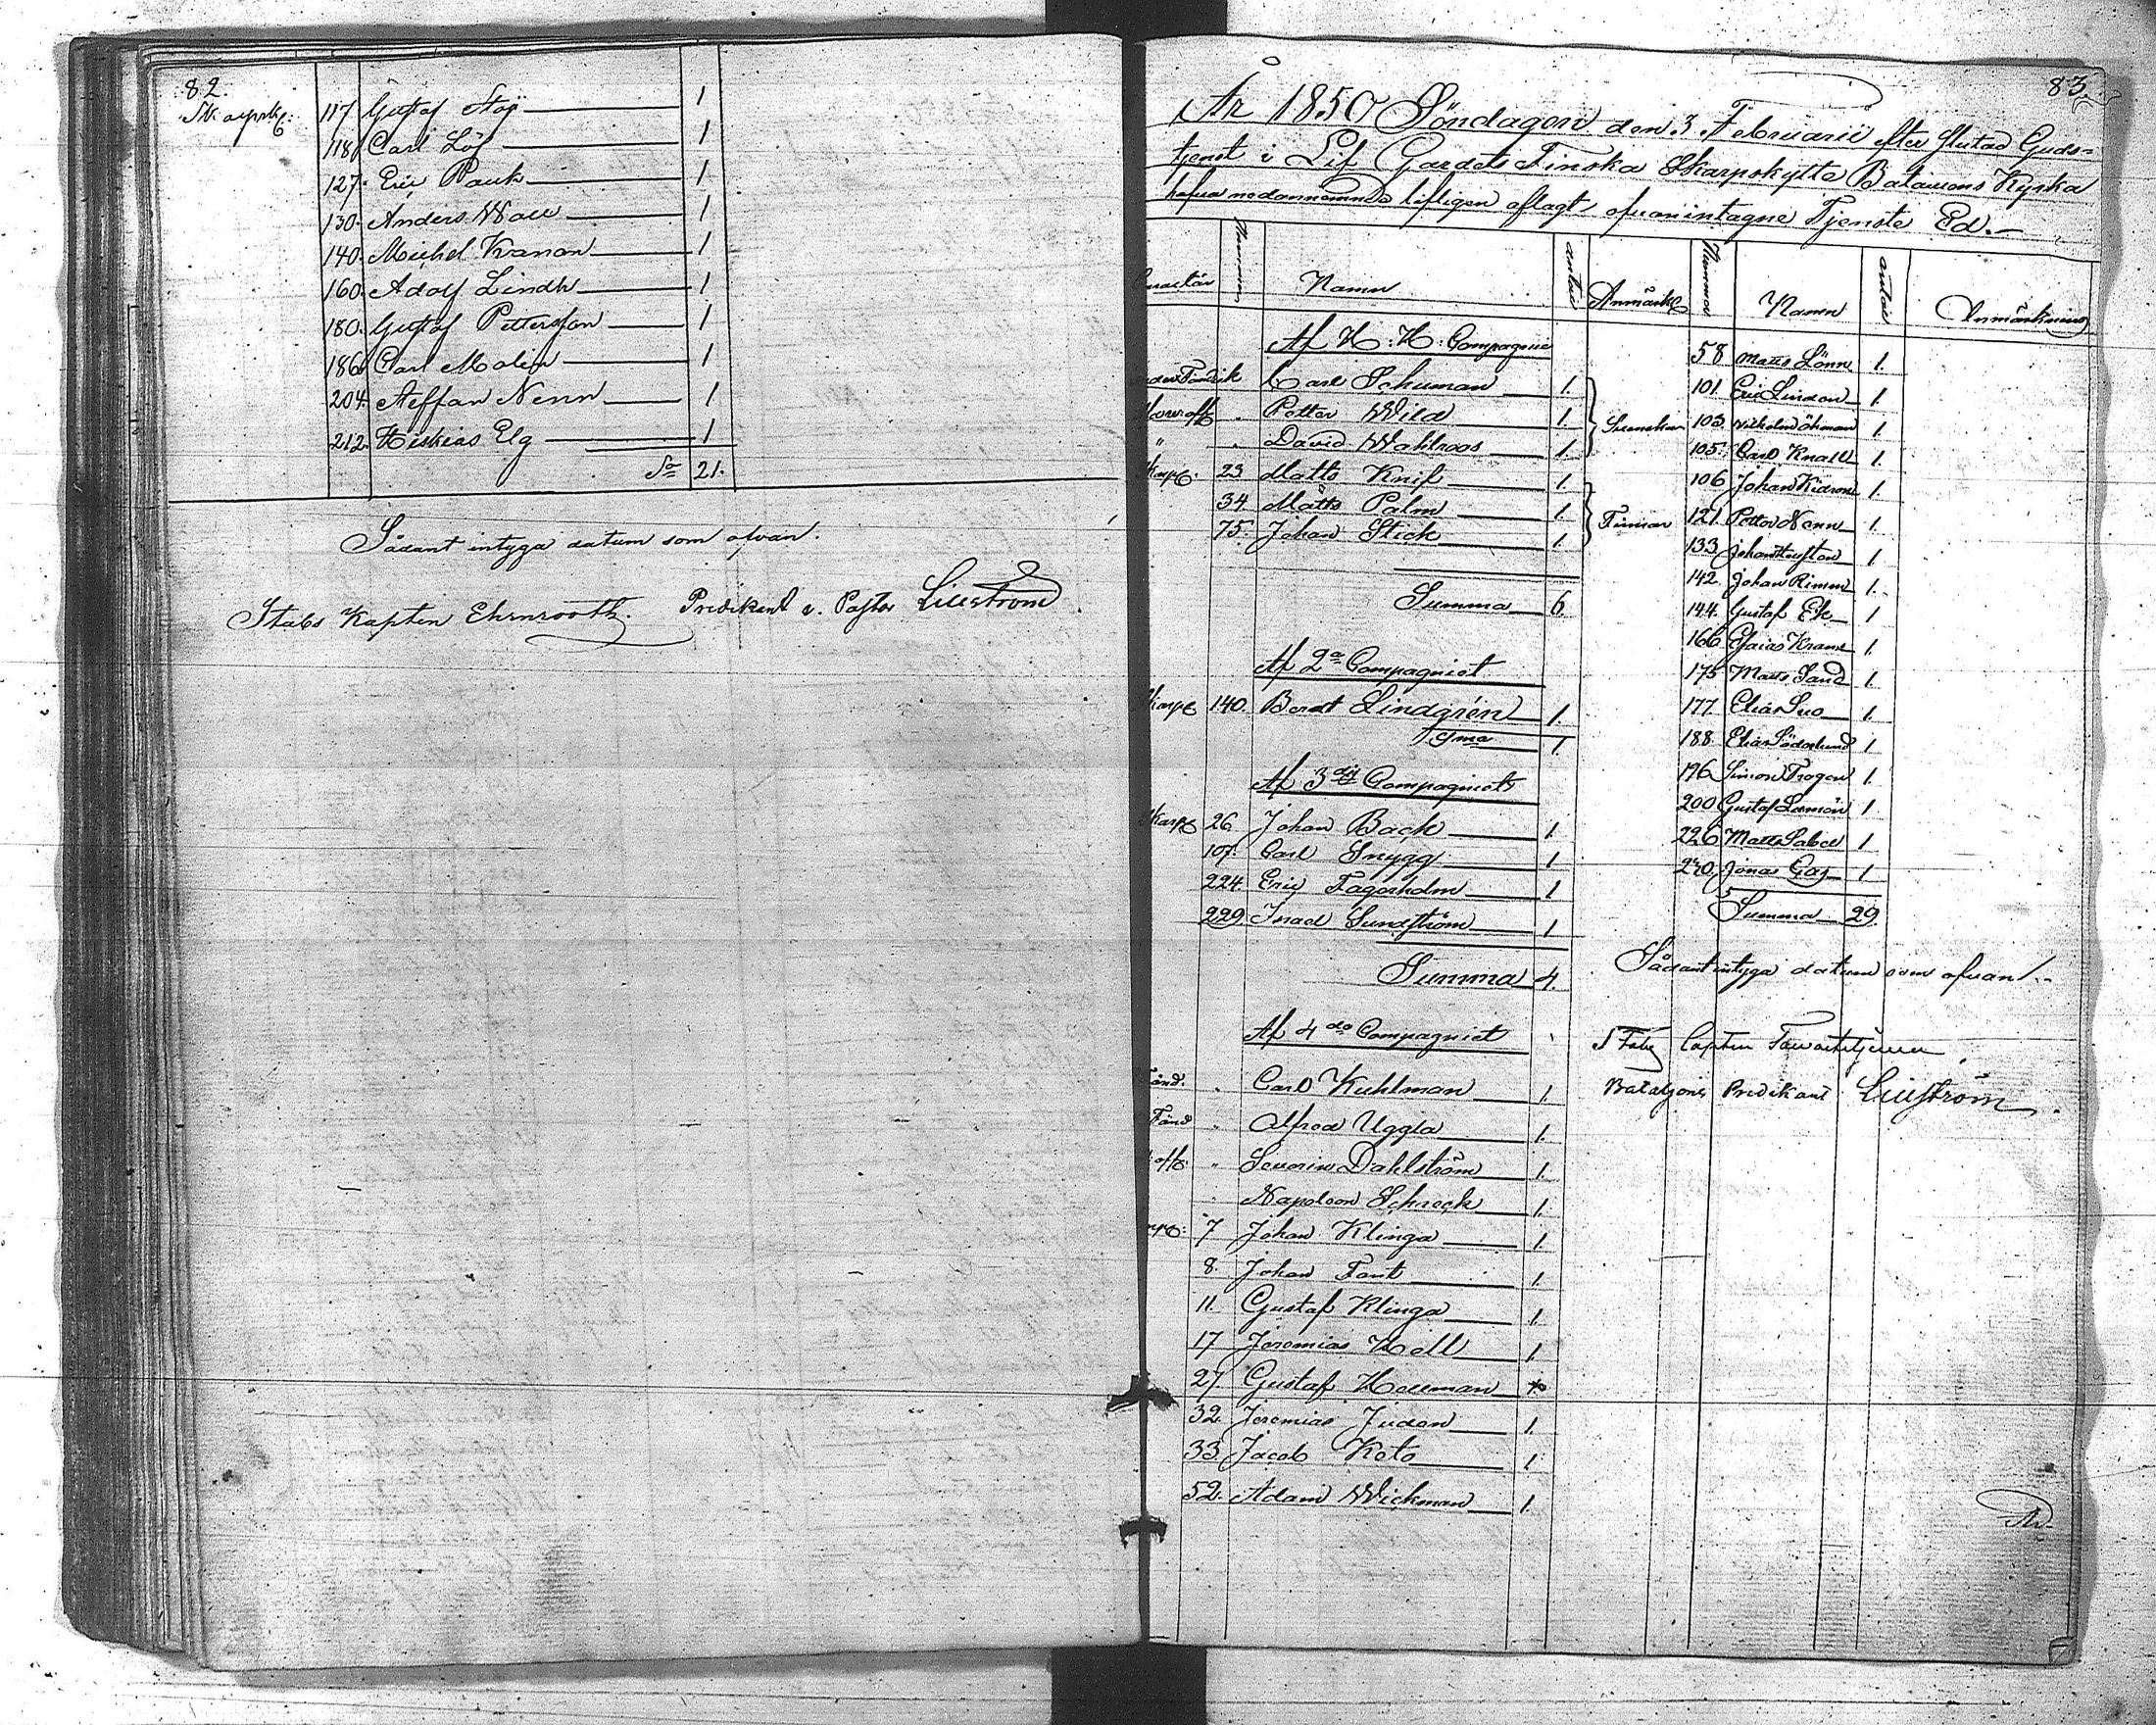 82.
Skarpsk:
117 Gustaf Stoij 1
118 Carl Löf 1
127. Eric Pauk 1
130. Anders Wall 1
140. Michel Kranan 1
160. Adolf Lindh 1
180. Gustaf Pettersson 1
186. Carl Malin 1
204. Steffan Nenn 1
212. Hiskias Elg 1
Sa 21.
Sådant intyga datum som ofvan.
Stabs Kapten Ehrnrooth. Predikant v. Pastor Lilleström
83.
År 1850 Söndagen den 3 Februarii efter slutad Guds=
tjenst i Lif Gardets Finska Skarpskytte Bataillons Kyrka
hafva nedannemnde lifligen aflagt ofvanintagne Tjenste Ed.
Nummer Namn antal Anmärkg
Af H: H: Compagnie
Fändrik Carl Schuman 1.
Petter Wild 1. Svenskar
" David Wahlroos 1.
Skarpg. 23 Matts Knif 1.
34 Matts Palm 1. Finnar
75. Johan Stick 1.
Summa 6.
Af 2a Compagniet
Skarpg 140. Berndt Lindgrén 1.
Sma 1
Af 3die Compagniets
Skarpg 26. Johan Back 1.
107. Carl Snygg 1
224. Eric Fagerholm 1
229. Israel Sundström 1
Summa 4.
Af 4de Compagniet
Fänd. Carl Kuhlman 1
Fänd Alfred Uggla 1.
off: Severin Dahlström 1.
Napoleon Schreck 1.
7 Johan Klinga 1.
8. Johan Fant 1.
11. Gustaf Klinga 1.
17 Jeremias Hell 1.
27. Gustaf Hellman
32. Jeremias Judan 1.
33. Jacob Keto 1.
52. Adam Wickman 1.
Nummer Namn antal Anmärkning
58 Matts Lönn 1.
101. Eric Lindon 1.
103. Wilhelm Öhman 1.
105. Carl Knall 1.
106 Johan Kidron 1.
121. Petter Nenn 1
133 Johan 1
142. Johan Rimm 1.
144. Gustaf Ek 1
166 Esaias Krans 1.
175 Matts Sand 1.
177. Elias Suo 1.
188. Elias Söderlund 1
196 Simon Trogen 1.
200 Gustaf Lemón 1.
226 Matts Sabel 1
230. Jonas Gas 1
Summa 29.
Sådant intyga datum som ofvan
Stabs Capten Tawaststjerna
Bataljons Predikant Lilleström